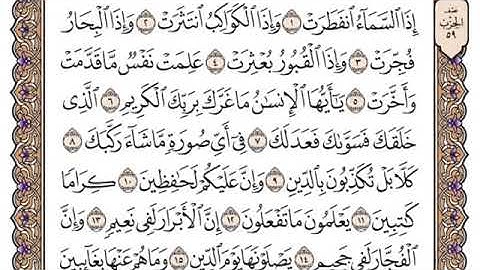 إِذَا ٱلسَّمَآءُ ٱنفَطَرَتْ ١ وَإِذَا ٱلْكَوَاكِبُ ٱنتَثَرَتْ ٢ وَإِذَا ٱلْبِحَارُ
فُجِّرَتْ ٣ وَإِذَا ٱلْقُبُورُ بُعْثِرَتْ ٤ عَلِمَتْ نَفْسٌ مَّا قَدَّمَتْ
وَأَخَّرَتْ ٥ يَـٰٓأَيُّهَا ٱلْإِنسَـٰنُ مَا غَرَّكَ بِرَبِّكَ ٱلْكَرِيمِ ٦ ٱلَّذِى
خَلَقَكَ فَسَوَّىٰكَ فَعَدَلَكَ ٧ فِىٓ أَىِّ صُورَةٍ مَّا شَآءَ رَكَّبَكَ ٨
كَلَّا بَلْ تُكَذِّبُونَ بِٱلدِّينِ ٩ وَإِنَّ عَلَيْكُمْ لَحَـٰفِظِينَ ١٠ كِرَامًا
كَـٰتِبِينَ ١١ يَعْلَمُونَ مَا تَفْعَلُونَ ١٢ إِنَّ ٱلْأَبْرَارَ لَفِى نَعِيمٍ ١٣ وَإِنَّ
ٱلْفُجَّارَ لَفِى جَحِيمٍ ١٤ يَصْلَوْنَهَا يَوْمَ ٱلدِّينِ ١٥ وَمَا هُمْ عَنْهَا بِغَآئِبِينَ
نصف
الحزب
٥٩